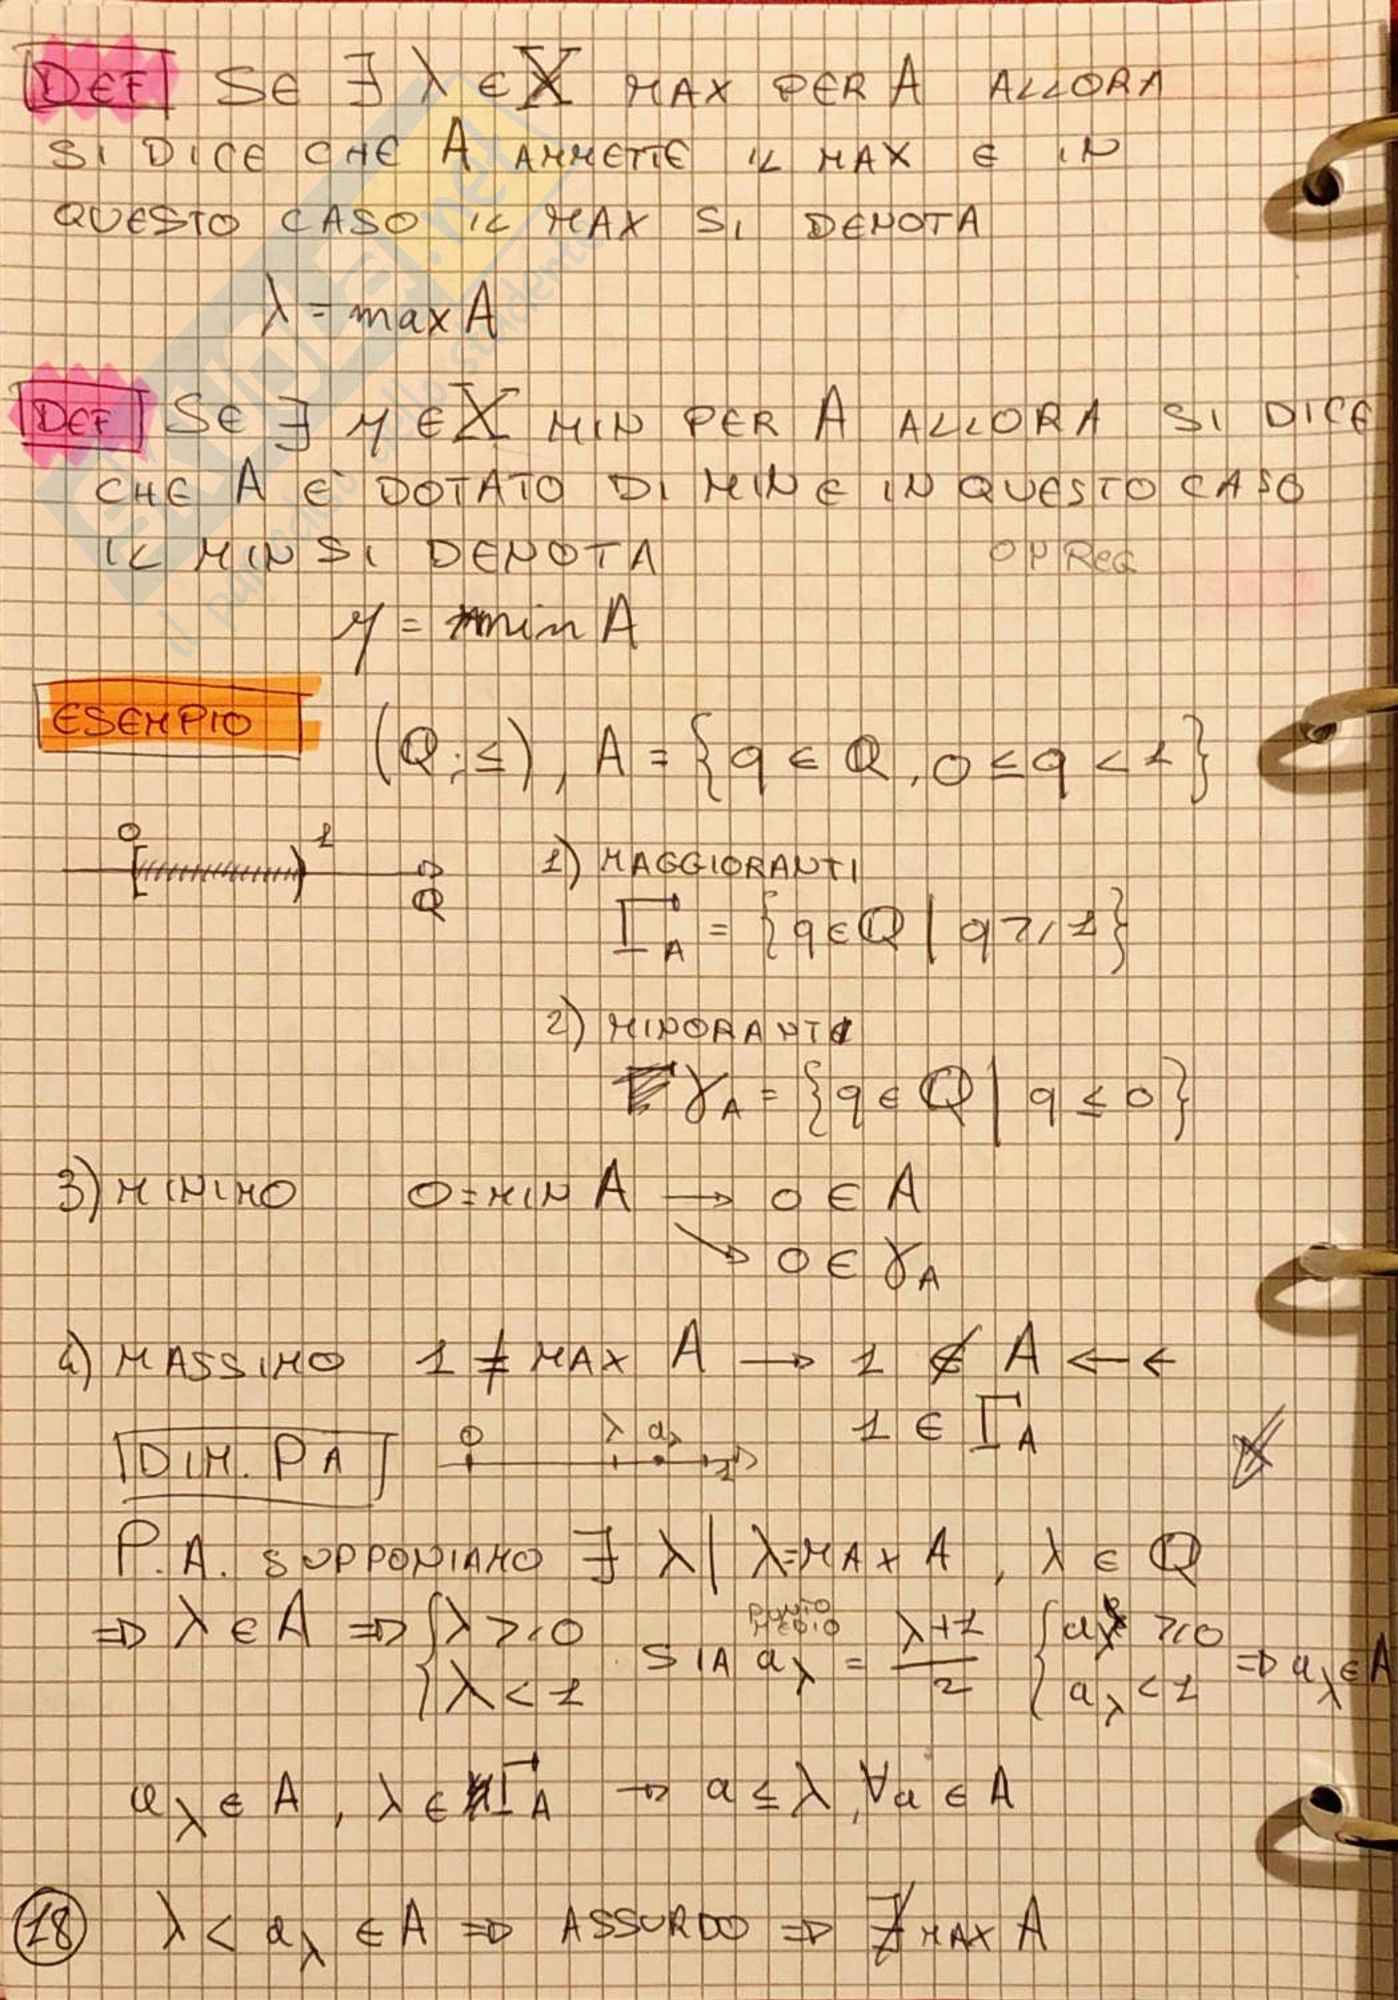 DEF SE ∃ λ ∈ X MAX PER A ALLORA
SI DICE CHE A AMMETTE IL MAX E IN
QUESTO CASO IL MAX SI DENOTA
λ = max A
DEF SE ∃ μ ∈ X MIN PER A ALLORA SI DICE
CHE A È DOTATO DI MIN E IN QUESTO CASO
IL MIN SI DENOTA
μ = min A
ESEMPIO (Q, ≤), A = {q ∈ Q, 0 ≤ q < 1}
0 1
Q
1) MAGGIORANTI
Γ_A = {q ∈ Q | q ≥ 1}
2) MINORANTI
γ_A = {q ∈ Q | q ≤ 0}
3) MINIMO 0 = MIN A → 0 ∈ A
↘ 0 ∈ γ_A
4) MASSIMO 1 ≠ MAX A → 1 ∉ A ← ←
1 ∈ Γ_A
DIM. PA 0 λ a_λ 1
P.A. SUPPONIAMO ∃ λ | λ = MAX A, λ ∈ Q
PUNTO MEDIO
⇒ λ ∈ A ⇒ { λ ≥ 0 λ < 1 SIA a_λ = (λ+1)/2 { a_λ ≥ 0 a_λ < 1 ⇒ a_λ ∈ A
a_λ ∈ A, λ ∈ Γ_A → a ≤ λ, ∀a ∈ A
18 λ < a_λ ∈ A ⇒ ASSURDO ⇒ ∄ MAX A